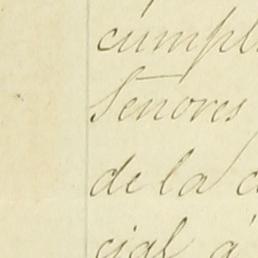 cumpl
Señores
de la
cial á